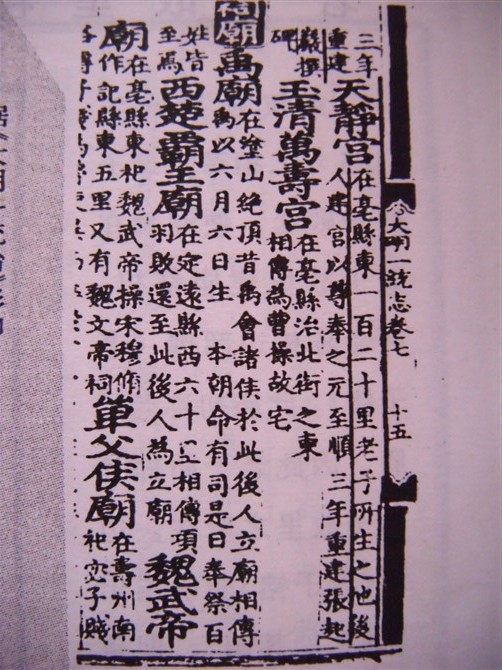 大明一統志卷七 十五
三年
重建
天靜宮
在亳縣東一百二十里老子所生之地後
人建宮以尊奉之元至順三年重建張起
巖撰
碑
玉清萬壽宮
在亳縣治北街之東
相傳為曹操故宅
祠廟
禹廟
在塗山絕頂昔禹會諸侯於此後人立廟相傳
禹以六月六日生 本朝命有司是日奉祭百
姓皆
至焉
西楚霸王廟
在定遠縣西六十里相傳項
羽敗還至此後人為立廟
魏武帝
廟
在亳縣東祀魏武帝操宋穆脩
作記縣東五里又有魏文帝祠
單父侯廟
在壽州南
祀宓子賤